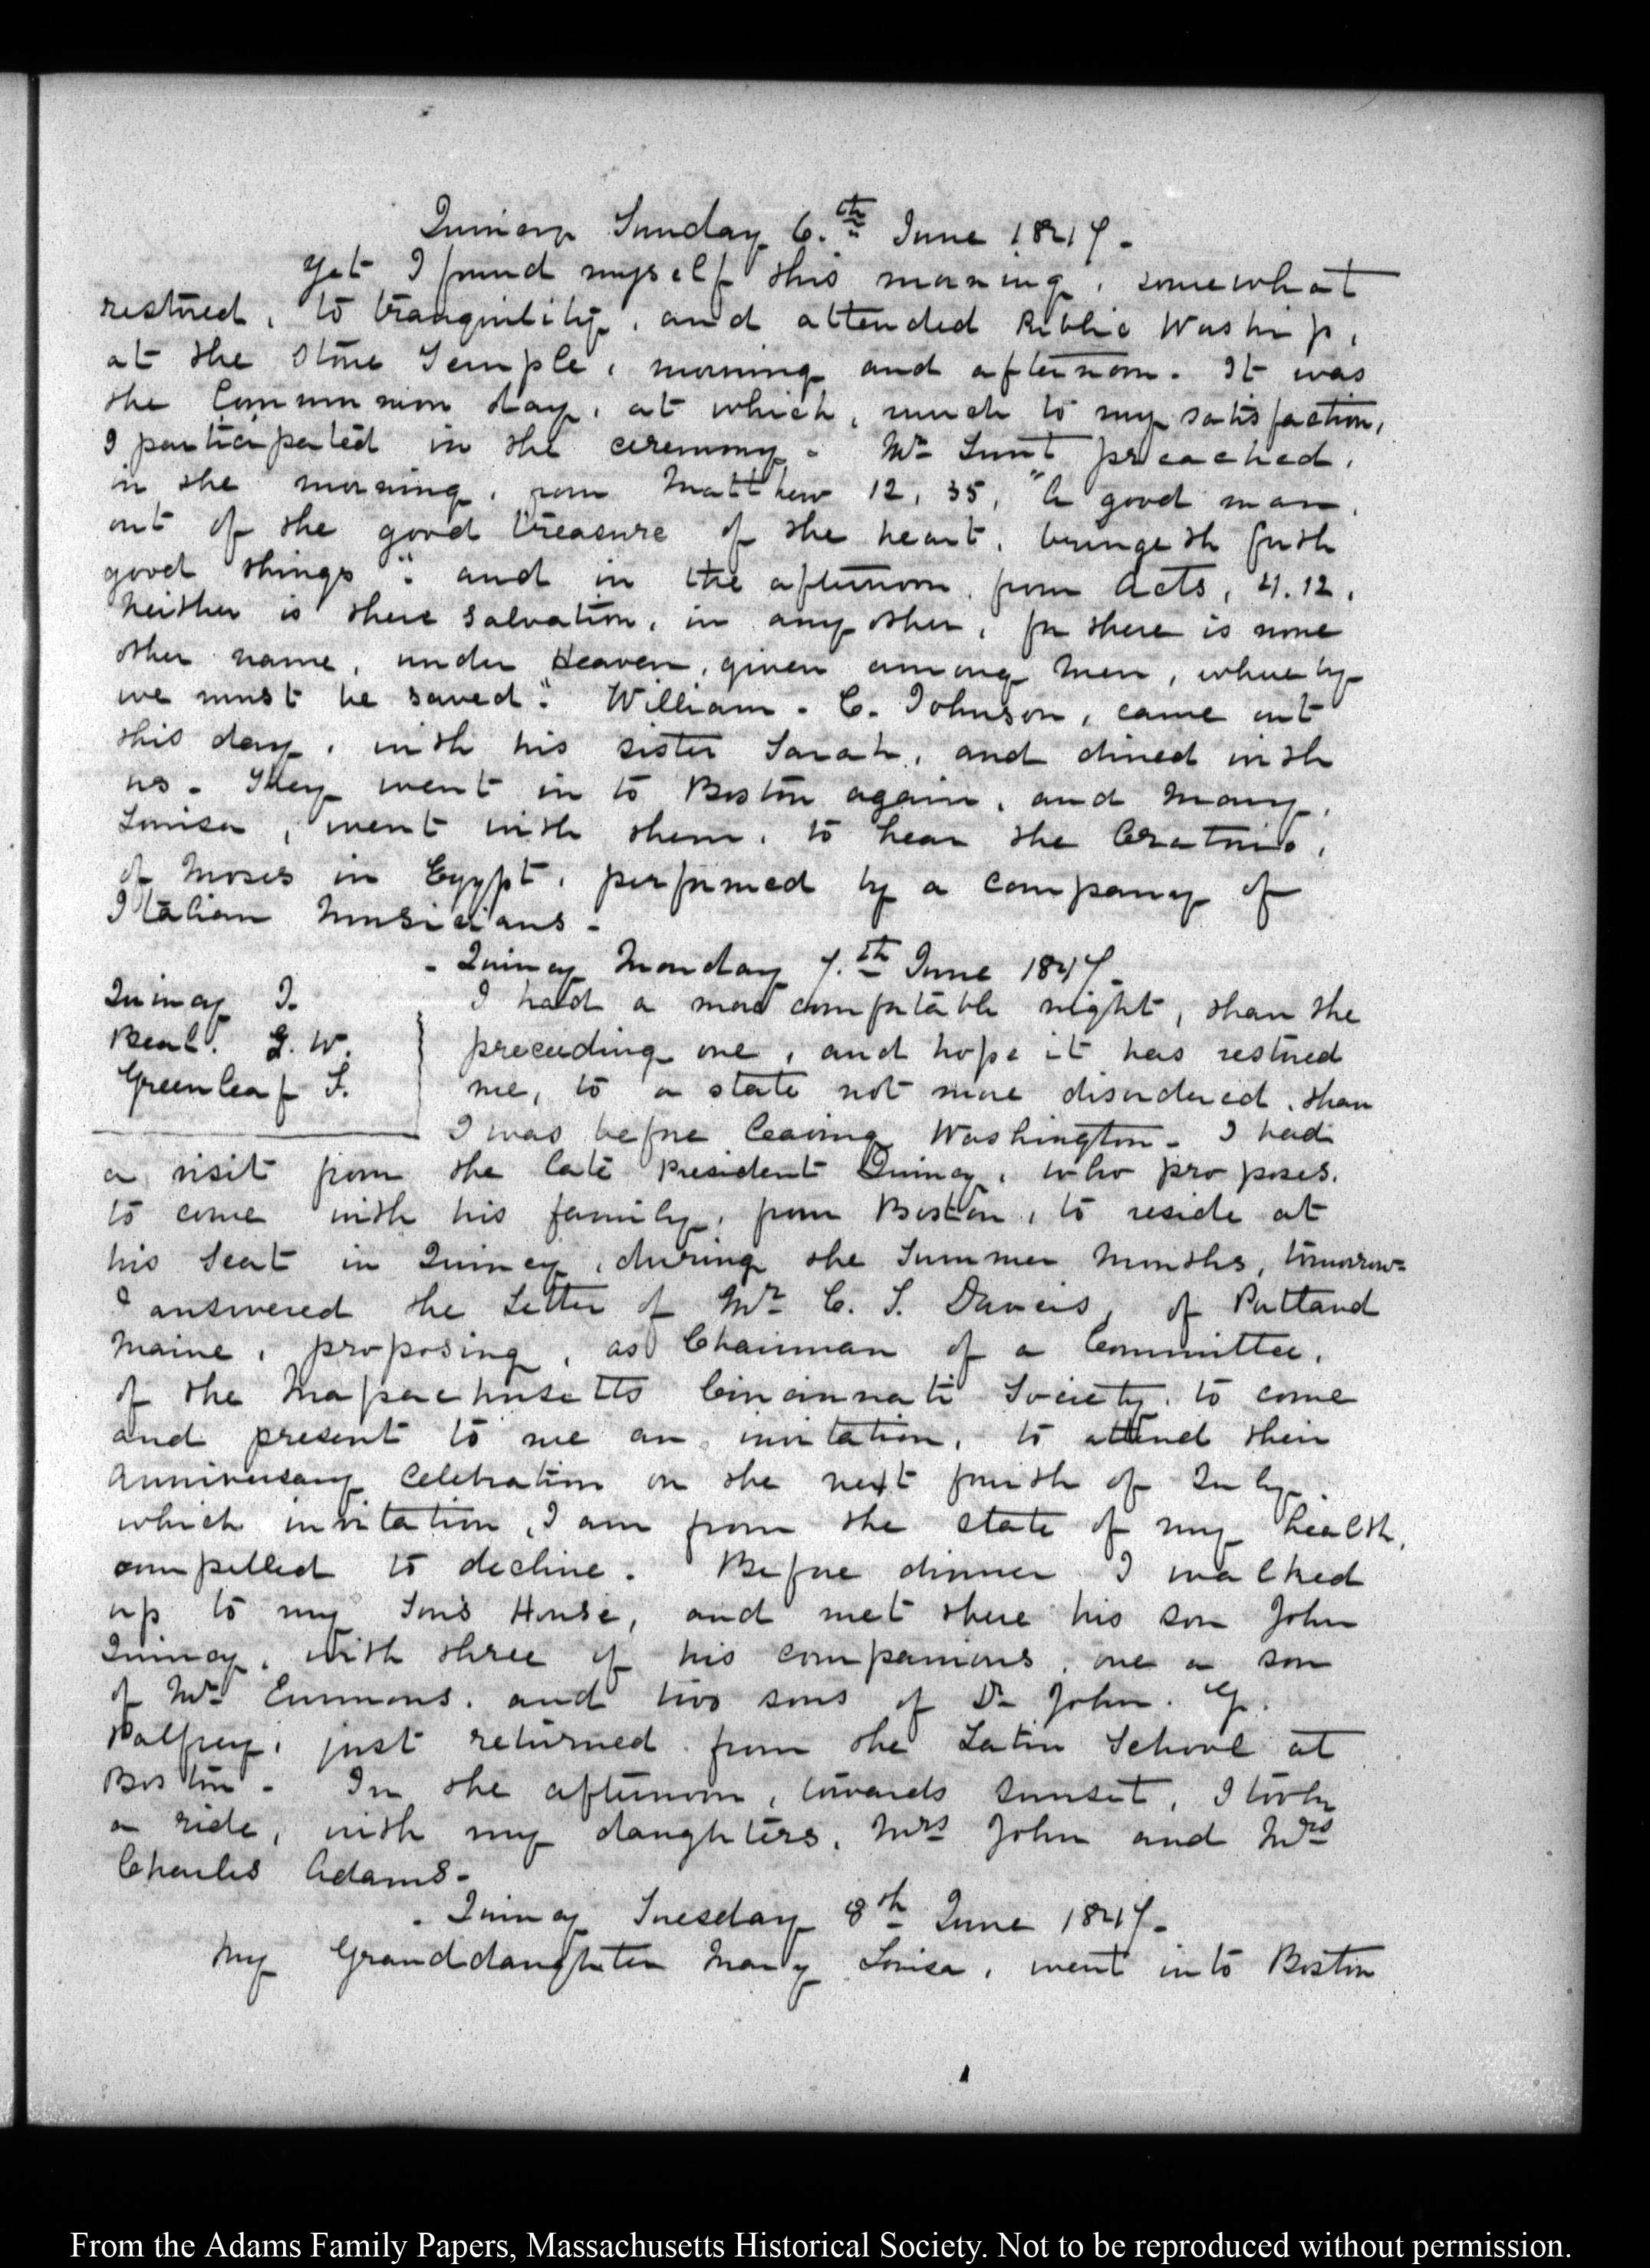 Quincy Sunday 6.th June 1847.
Yet I found myself this morning, somewhat
restored, to tranquility, and attended Public Worship,
at the Stone Temple, morning and afternoon. It was
the Communion day, at which, much to my satisfaction,
I participated in the ceremony. Mr Lunt preached,
in the morning, from Matthew 12, 35, "A good man,
out of the good treasure of the heart, bringeth forth
good things": and in the afternoon from Acts, 4.12.
Neither is there salvation, in any other, for there is none
other name, under Heaven, given among men, whereby
we must be saved." William. C. Johnson, came out
this day, with his sister Sarah, and dined with
us. They went in to Boston again, and Mary,
Louisa, went with them, to hear the Oratorio,
of Moses in Egypt, performed by a company of
Italian Musicians.
- Quincy Monday 7.th June 1847.
Quincy J.
Beal. G. W.
Greenleaf T.
I had a more comfortable night, than the
preceeding one, and hope it has restored
me, to a state not more disordered, than
I was before leaving Washington. I had
a visit from the late President Quincy, who proposes.
to come with his family, from Boston, to reside at
his Seat in Quincy, during the Summer Months, tomorrow.
I answered the Letter of Mr C. S. Daveis, of Portland
Maine, proposing, as Chairman of a Committee,
of the Massachusetts Cincinnati Society, to come
and present to me an invitation, to attend their
Anniversary Celebration on the next fourth of July.
which invitation, I am from the state of my health,
compelled to decline. Before dinner I walked
up to my Son's House, and met there his son John
Quincy, with three of his companions, one a son
of Mr Emmons, and two sons of Dr John. G.
Palfrey, just returned from the Latin School at
Boston. In the afternoon, towards sunset, I took
a ride, with my daughters, Mrs John and Mrs
Charles Adams.
. Quincy Tuesday 8th June 1847.
My Granddaughter Mary Louisa, went into Boston
From the Adams Family Papers, Massachusetts Historical Society. Not to be reproduced without permission.